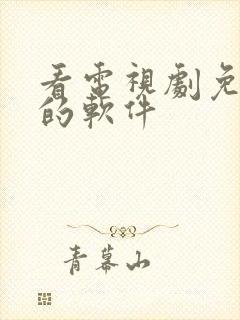 看電視劇免
的軟件
青幕山